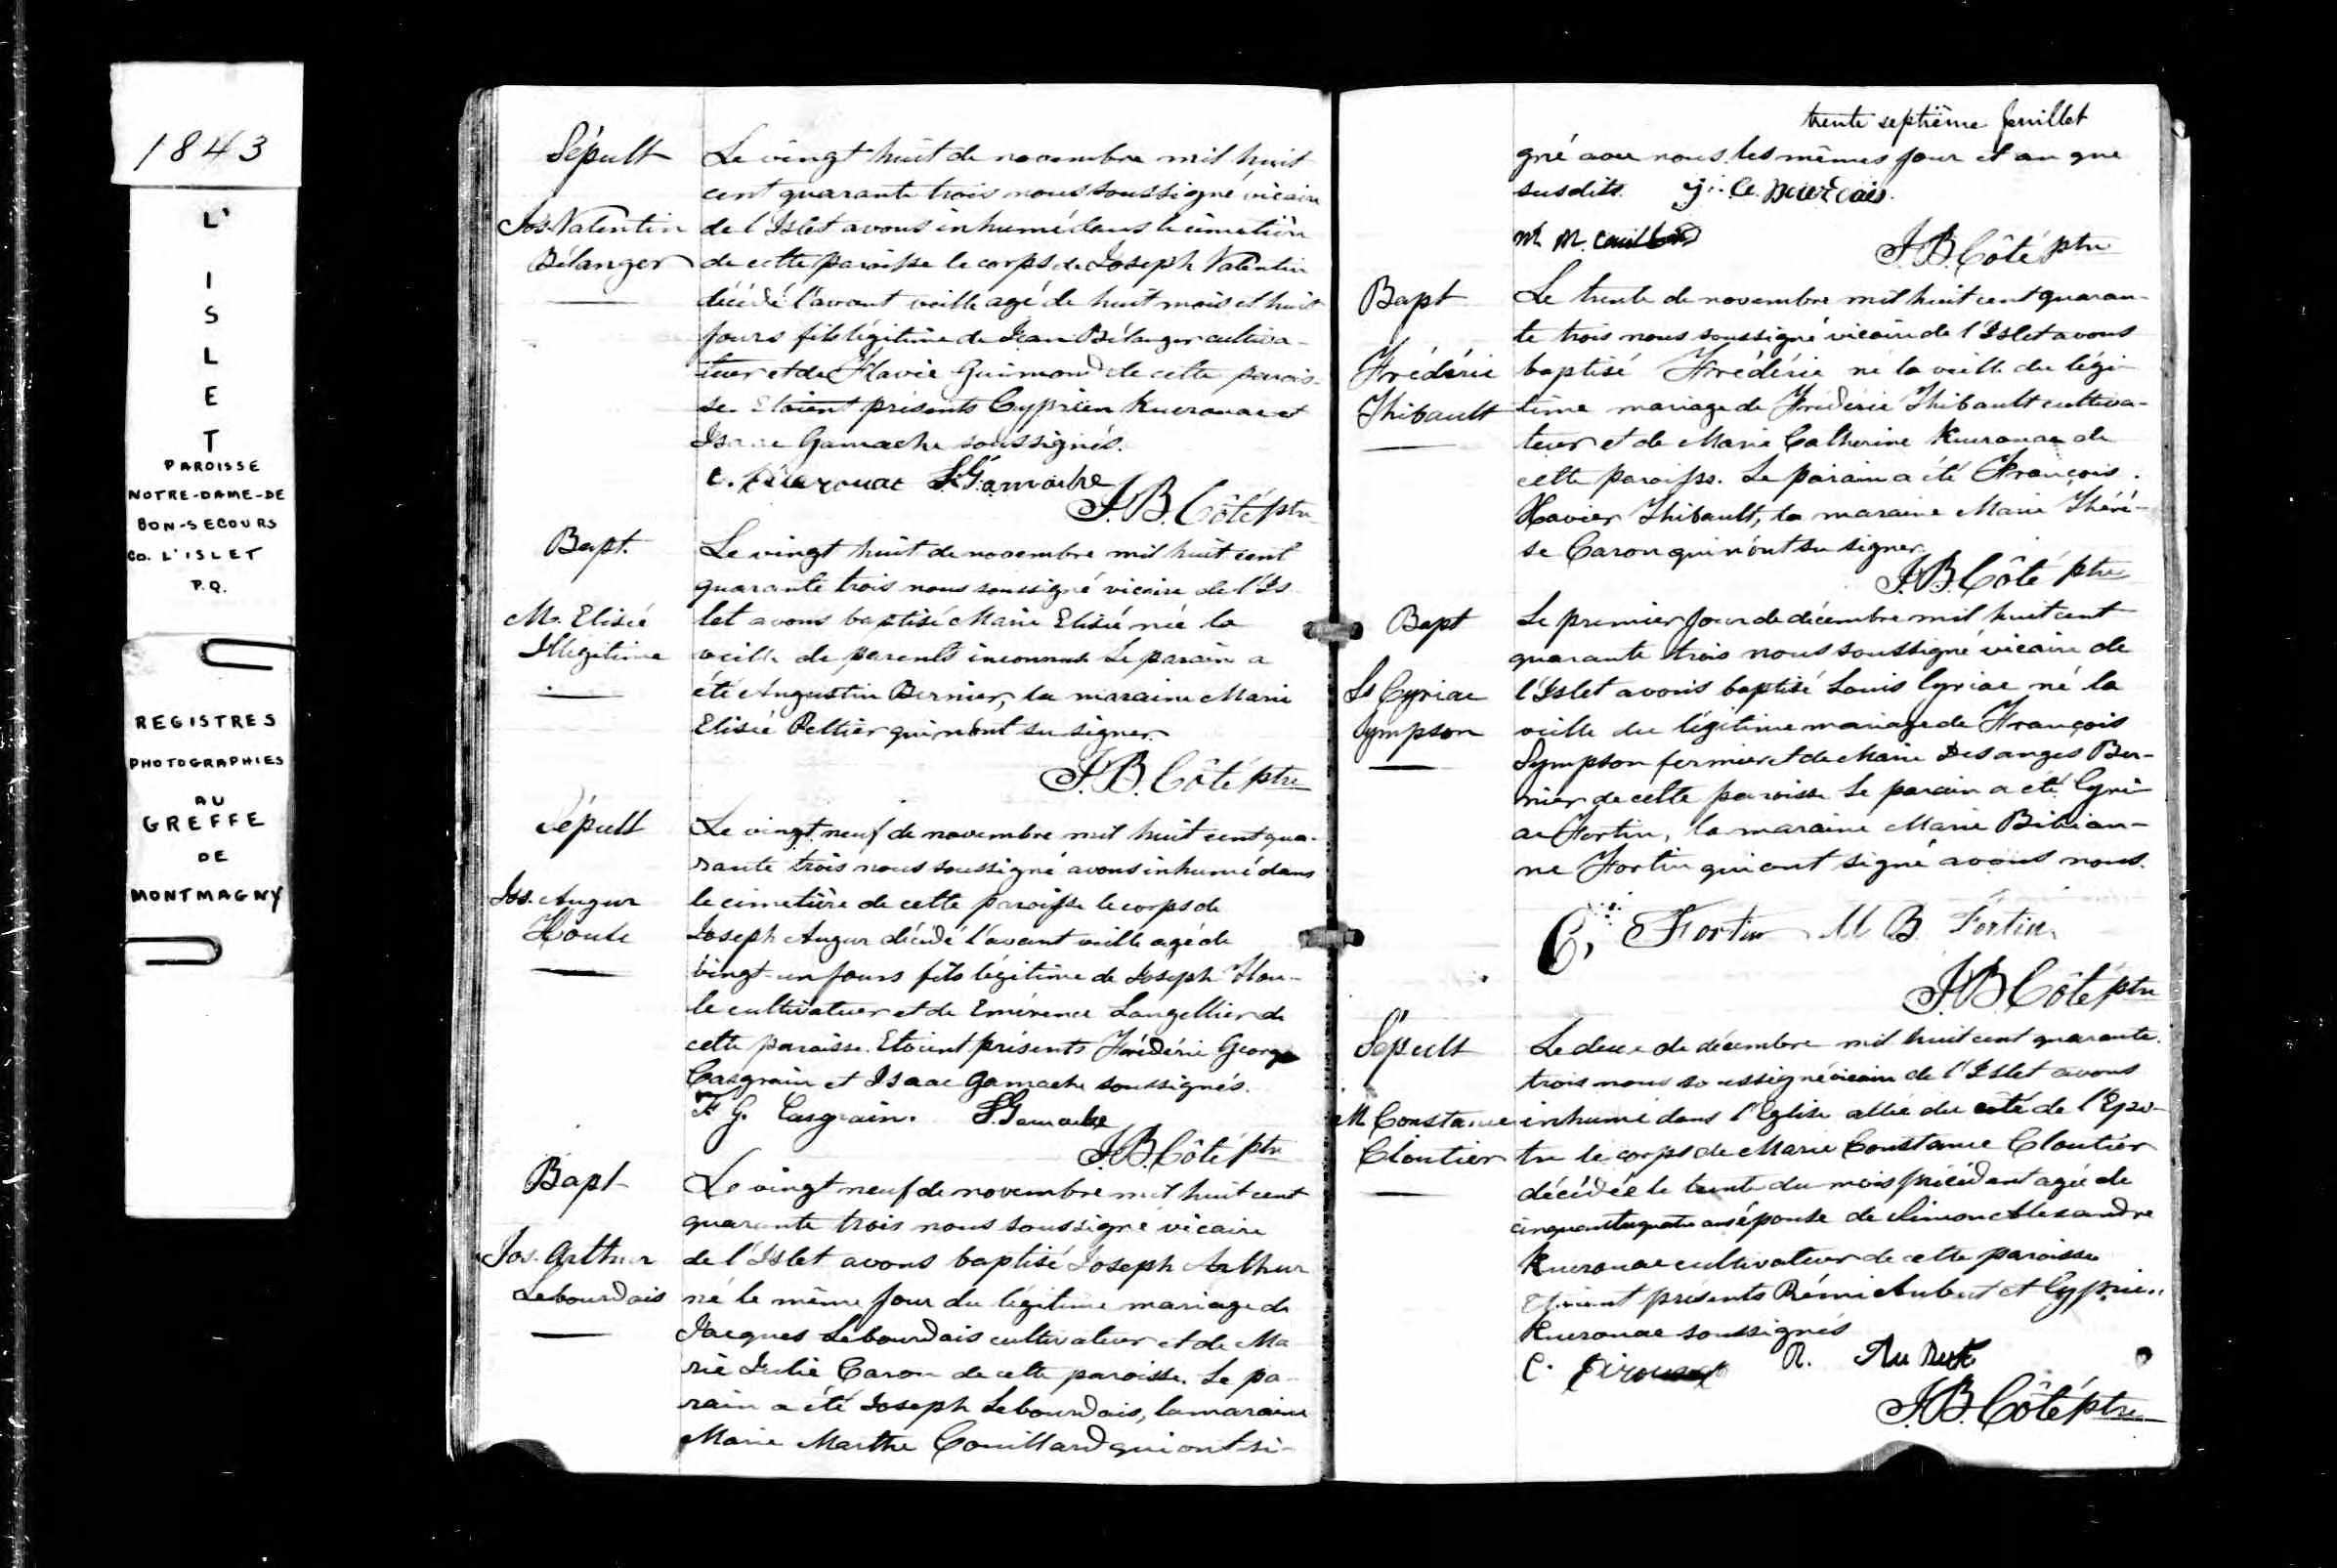 1843
L'
I
S
L
E
T
PAROISSE
NOTRE-DAME-DE
BON-SECOURS
CO. L'ISLET
P.Q.
REGISTRES
PHOTOGRAPHIES
AU
GREFFE
DE
MONTMAGNY
Sépult
Jos. Valentin
Bélanger
Le vingt huit de novembre mil huit
cent quarante trois nous soussigné vicaire
de l'Islet avons inhumé dans le cimetière
de cette paroisse le corps de Joseph Valentin
décédé l'avant veille agé de huit mois et huit
jours fils légitime de Jean Bélanger cultiva-
teur et de Flavie Guimond de cette parois-
se. Etoient présents Cyprien Kuerouac et
Isaac Gamache soussignés.
C. Kierouac I. Gamache
J.B. Côté ptre
Bapt.
M. Elisée
Illégitime
Le vingt huit de novembre mil huit cent
quarante trois nous soussigné vicaire de l'Is
let avons baptisé Marie Elisée née la
veille de parents inconnus Le parain a
été Augustin Bernier, la maraine Marie
Elisée Peltier qui n'ont su signer
J.B. Côté ptre
Sépult
Jos. Augur
Houle
Le vingt neuf de novembre mil huit cent qua-
rante trois nous soussigné avons inhumé dans
le cimetière de cette paroisse le corps de
Joseph Augur décédé l'avant veille agé de
vingt-un jours fils légitime de Joseph Hou-
le cultivateur et de Emérence Langellier de
cette paroisse. Etoient présents Frédéric George
Casgrain et Isaac Gamache soussignés.
F G. Casgrain. I. Gamache
J.B. Côté ptre
Bapt
Jos. Arthur
Lebourdais
Le vingt neuf de novembre mil huit cent
quarante trois nous soussigné vicaire
de l'Islet avons baptisé Joseph Arthur
né le même jour du légitime mariage de
Jacques Lebourdais cultivateur et de Ma
rie Julie Caron de cette paroisse. Le pa-
rain a été Joseph Lebourdais, la maraine
Marie Marthe Couillard qui ont si-
trente septième feuillet
gné avec nous les mêmes jour et an que
susdits.
M. M. Couillard
J.B. Côté ptre
Bapt
Frédéric
Thibault
Le trente de novembre mil huit cent quaran-
te trois nous soussigné vicaire de l'Islet avons
baptisé Frédéric né la veille du légi-
time mariage de Frédéric Thibault cultiva-
teur et de Marie Catherine Kuerouac de
cette paroisse. Le parain a été François
Xavier Thibault, la maraine Marie Thérè-
se Caron qui n'ont su signer.
J.B. Côté ptre
Bapt
Ls Cyriac
Sympson
Le premier jour de décembre mil huit cent
quarante trois nous soussigné vicaire de
l'Islet avons baptisé Louis Cyriac né la
veille du légitime mariage de François
Sympson fermier et de Marie Desanges Ber-
nier de cette paroisse Le parain a été Cyri-
ac Fortin, la maraine Marie Bibian-
ne Fortin qui ont signé avons nous.
C, Fortin M B. Fortin
J.B. Côté ptre
Sépult
M Constance
Cloutier
Le deux de décembre mil huit cent quarante
trois nous soussigné vicaire de l'Islet avons
inhumé dans l'Eglise allée du coté de l'Epi-
tre le corps de Marie Constance Cloutier
décédée le trente du mois précédent agée de
cinquante quatre ans épouse de Simon Alexandre
Kuerouac cultivateur de cette paroisse
Etoient présents Rémi Aubert et Cyprien
Kuerouac soussignés
C. Kirouac R. Au bert
J.B. Côté ptre